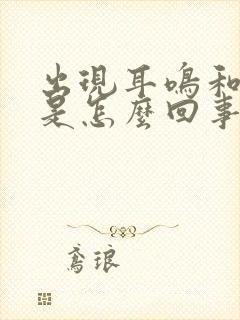 出現耳鳴和
是怎麼回事
鳶琅